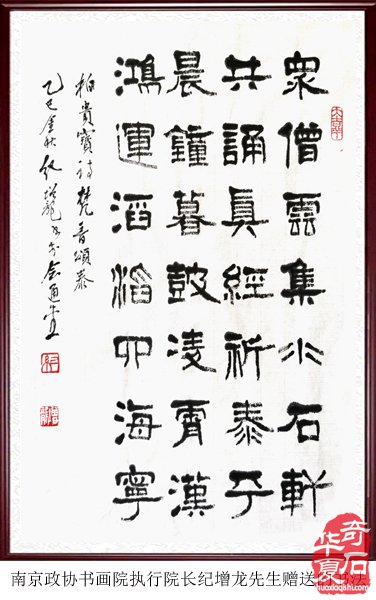 衆僧雲集小石軒
共誦真經祈泰平
晨鐘暮鼓凌霄漢
鴻運滔滔四海寧
柏貴寶詩梵音頌泰
乙巳金秋紀增龍書於会通堂
南京政协书画院执行院长纪增龙先生赠送书法
华夏奇石